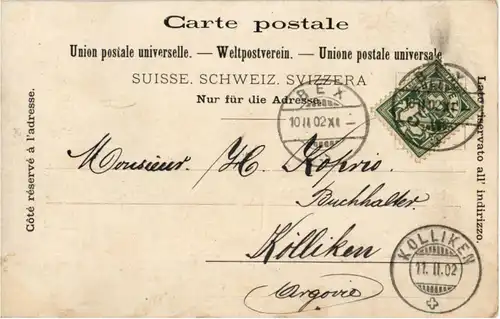 Carte postale
Union postale universelle. — Weltpostverein. — Unione postale universale
SUISSE. SCHWEIZ. SVIZZERA
Nur für die Adresse.
Côté réservé à l'adresse.
Lato riservato all' indirizzo.
BEX
10 II 02 XI
BEX
10 II 02 XI
Monsieur H. Koprio
Buchhalter
Kölliken
Argovie
KÖLLIKEN
11. II. 02